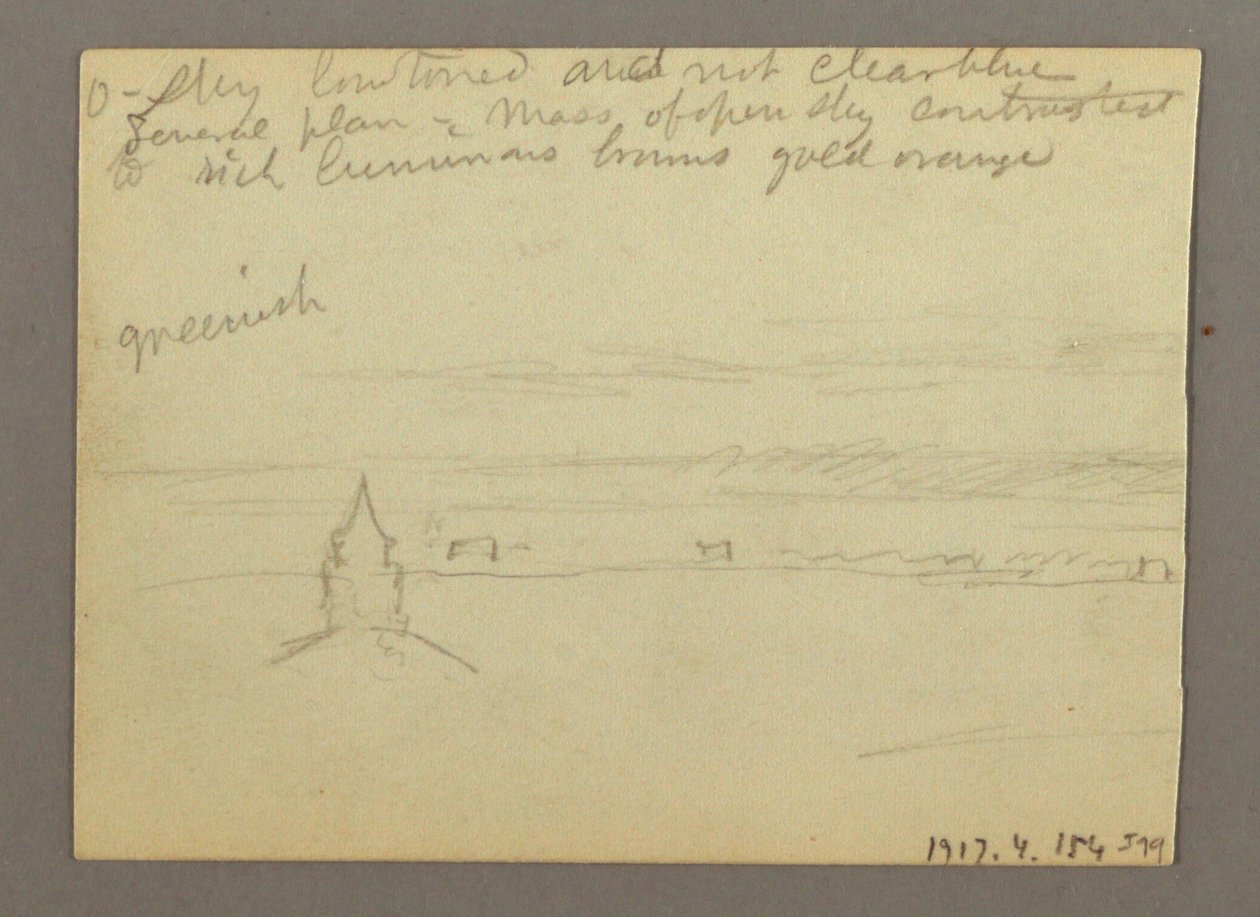 0 - Sky lowtoned and not clear blue
General plan - Mass of open sky contrasted
to rich luminous browns gold orange
greenish
1917.4.154 J99